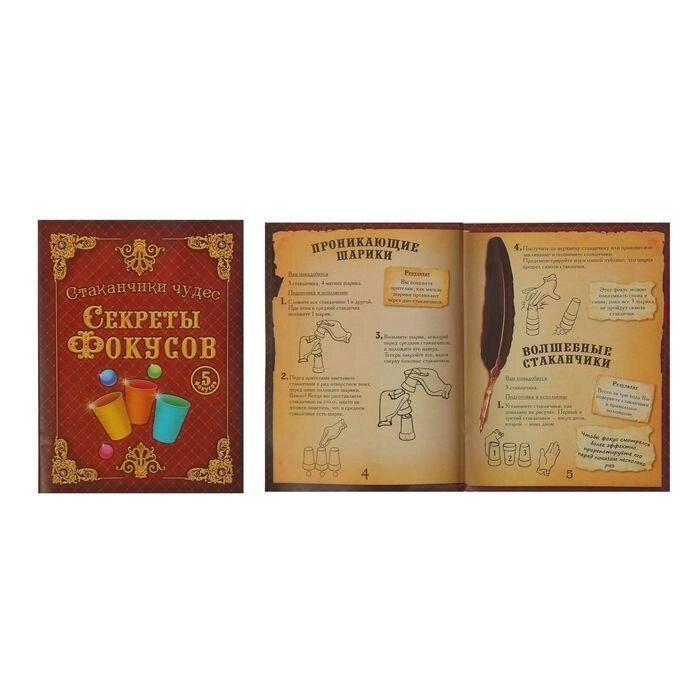 Стаканчики чудес
Секреты
Фокусов
5
фокусов
ПРОНИКАЮЩИЕ
ШАРИКИ
Вам понадобится
3 стаканчика, 4 мягких шарика.
Подготовка и исполнение
1. Сложите все стаканчики 1 в другой.
При этом в средний стаканчик
положите 1 шарик.
Результат
Вы покажете
зрителям, как мягкие
шарики проникают
через дно стаканчиков.
2. Перед зрителями выставьте
стаканчики в ряд отверстием вниз,
перед ними положите шарики.
Важно! Когда вы расставляете
стаканчики на столе, никто не
должен заметить, что в среднем
стаканчике есть шарик.
3. Возьмите шарик, лежащий
перед средним стаканчиком,
и положите его наверх.
Теперь закройте его, надев
сверху боковые стаканчики.
4
4. Постучите по верхнему стаканчику или произнесите
заклинание и поднимите стаканчики.
Продемонстрируйте изумленной публике, что шарик
прошел сквозь стаканчик.
Этот фокус можно
показывать снова и
снова, пока все 3 шарика
не пройдут сквозь
стаканчик.
ВОЛШЕБНЫЕ
СТАКАНЧИКИ
Вам понадобится
3 стаканчика.
Подготовка и исполнение
1. Установите стаканчики, как
показано на рисунке. Первый и
третий стаканчики - вверх дном,
второй - вниз дном.
Результат
Всего за три хода Вы
повернете стаканчики
в правильное
положение.
1 2 3
Чтобы фокус смотрелся
более эффектно,
прорепетируйте его
перед показом несколько
раз.
5